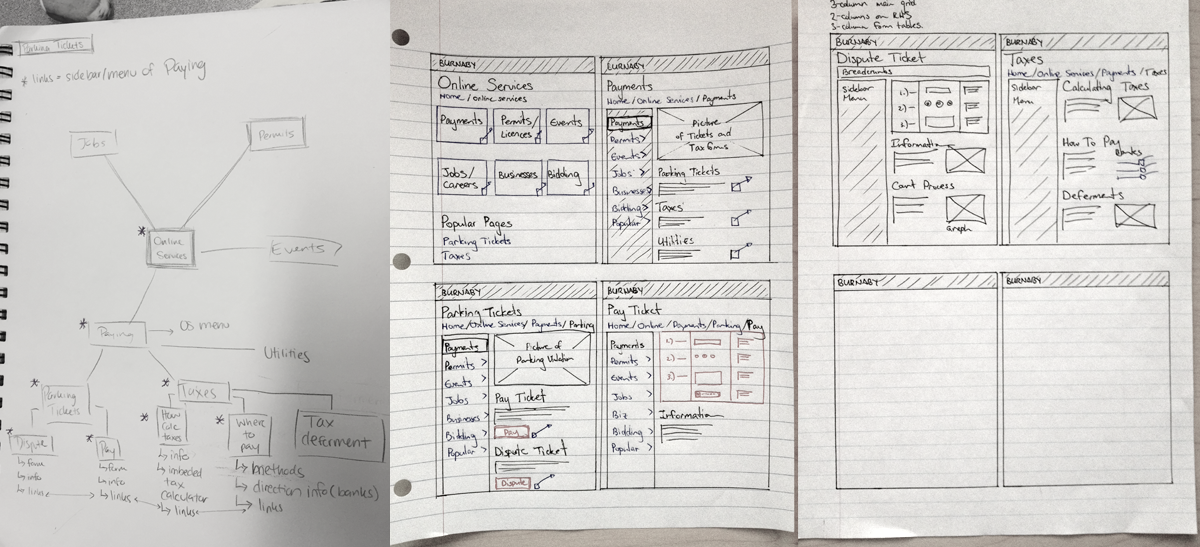 Parking Tickets
* links = sidebar/menu of Paying
Jobs
Permits
* Online
Services
Events?
* Paying → OS menu
Utilities
* Parking
Tickets
* Taxes
* Dispute
↳ form
↳ info
↳ links
* Pay
↳ form
↳ info
↳ links
* How
calc
taxes
↳ info
↳ imbeded
tax
calculator
↳ links
* Where
to
pay
↳ methods
↳ direction info (banks)
↳ links
Tax
deferment
BURNABY
Online Services
Home / Online services
Payments
Permits/
Licences
Events
Jobs/
Careers
Businesses
Bidding
Popular Pages
Parking Tickets
Taxes
BURNABY
Payments
Home / Online Services / Payments
Payments
Permits >
Events >
Jobs >
Businesses >
Bidding >
Popular >
Picture
of Tickets and
Tax Forms
Parking Tickets
Taxes
Utilities
BURNABY
Parking Tickets
Home/Online Services/ Payments/ Parking
Payments
Permits >
Events >
Jobs >
Businesses >
Bidding >
Popular >
Picture of
Parking Violation
Pay Ticket
Pay
Dispute Ticket
Dispute
BURNABY
Pay Ticket
Home / Online / Payments / Parking / Pay
Payments
Permits >
Events >
Jobs >
Biz >
Bidding >
Popular >
1) —
2) —
3) —
Information
3-column main grid
2-columns on RHS
3-column form tables.
BURNABY
Dispute Ticket
Breadcrumbs
Sidebar
Menu
1) —
2) —
3) —
Information
Court Process
Graph
BURNABY
Taxes
Home / Online Services / Payments / Taxes
Sidebar
Menu
Calculating Taxes
How To Pay
Banks
Deferments
BURNABY
BURNABY